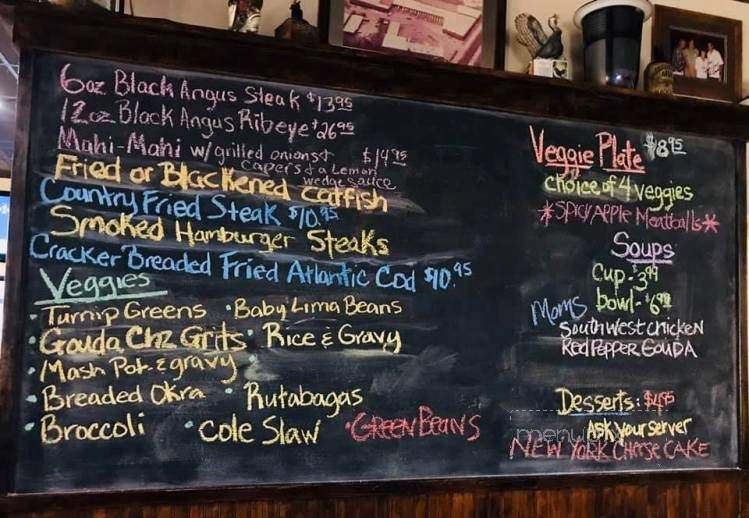 6oz Black Angus Steak $13.95
12oz Black Angus Ribeye $26.95
Mahi-Mahi w/grilled onions + $14.95
capers + a Lemon
wedge sauce
Fried or Blackened Catfish
Country Fried Steak $10.95
Smoked Hamburger Steaks
Cracker Breaded Fried Atlantic Cod $10.95
Veggies
• Turnip Greens • Baby Lima Beans
• Gouda Chz Grits • Rice & Gravy
• Mash Pot. & gravy
• Breaded Okra • Rutabagas
• Broccoli • Cole Slaw • GREEN BEANS
Veggie Plate $8.95
choice of 4 veggies
*SPICY APPLE Meatballs*
Soups
Cup-3.99
Moms bowl-$6.99
SouthWest chicken
Red Pepper Gouda
Desserts: $4.95
Ask your server
NEW YORK CHEESE CAKE